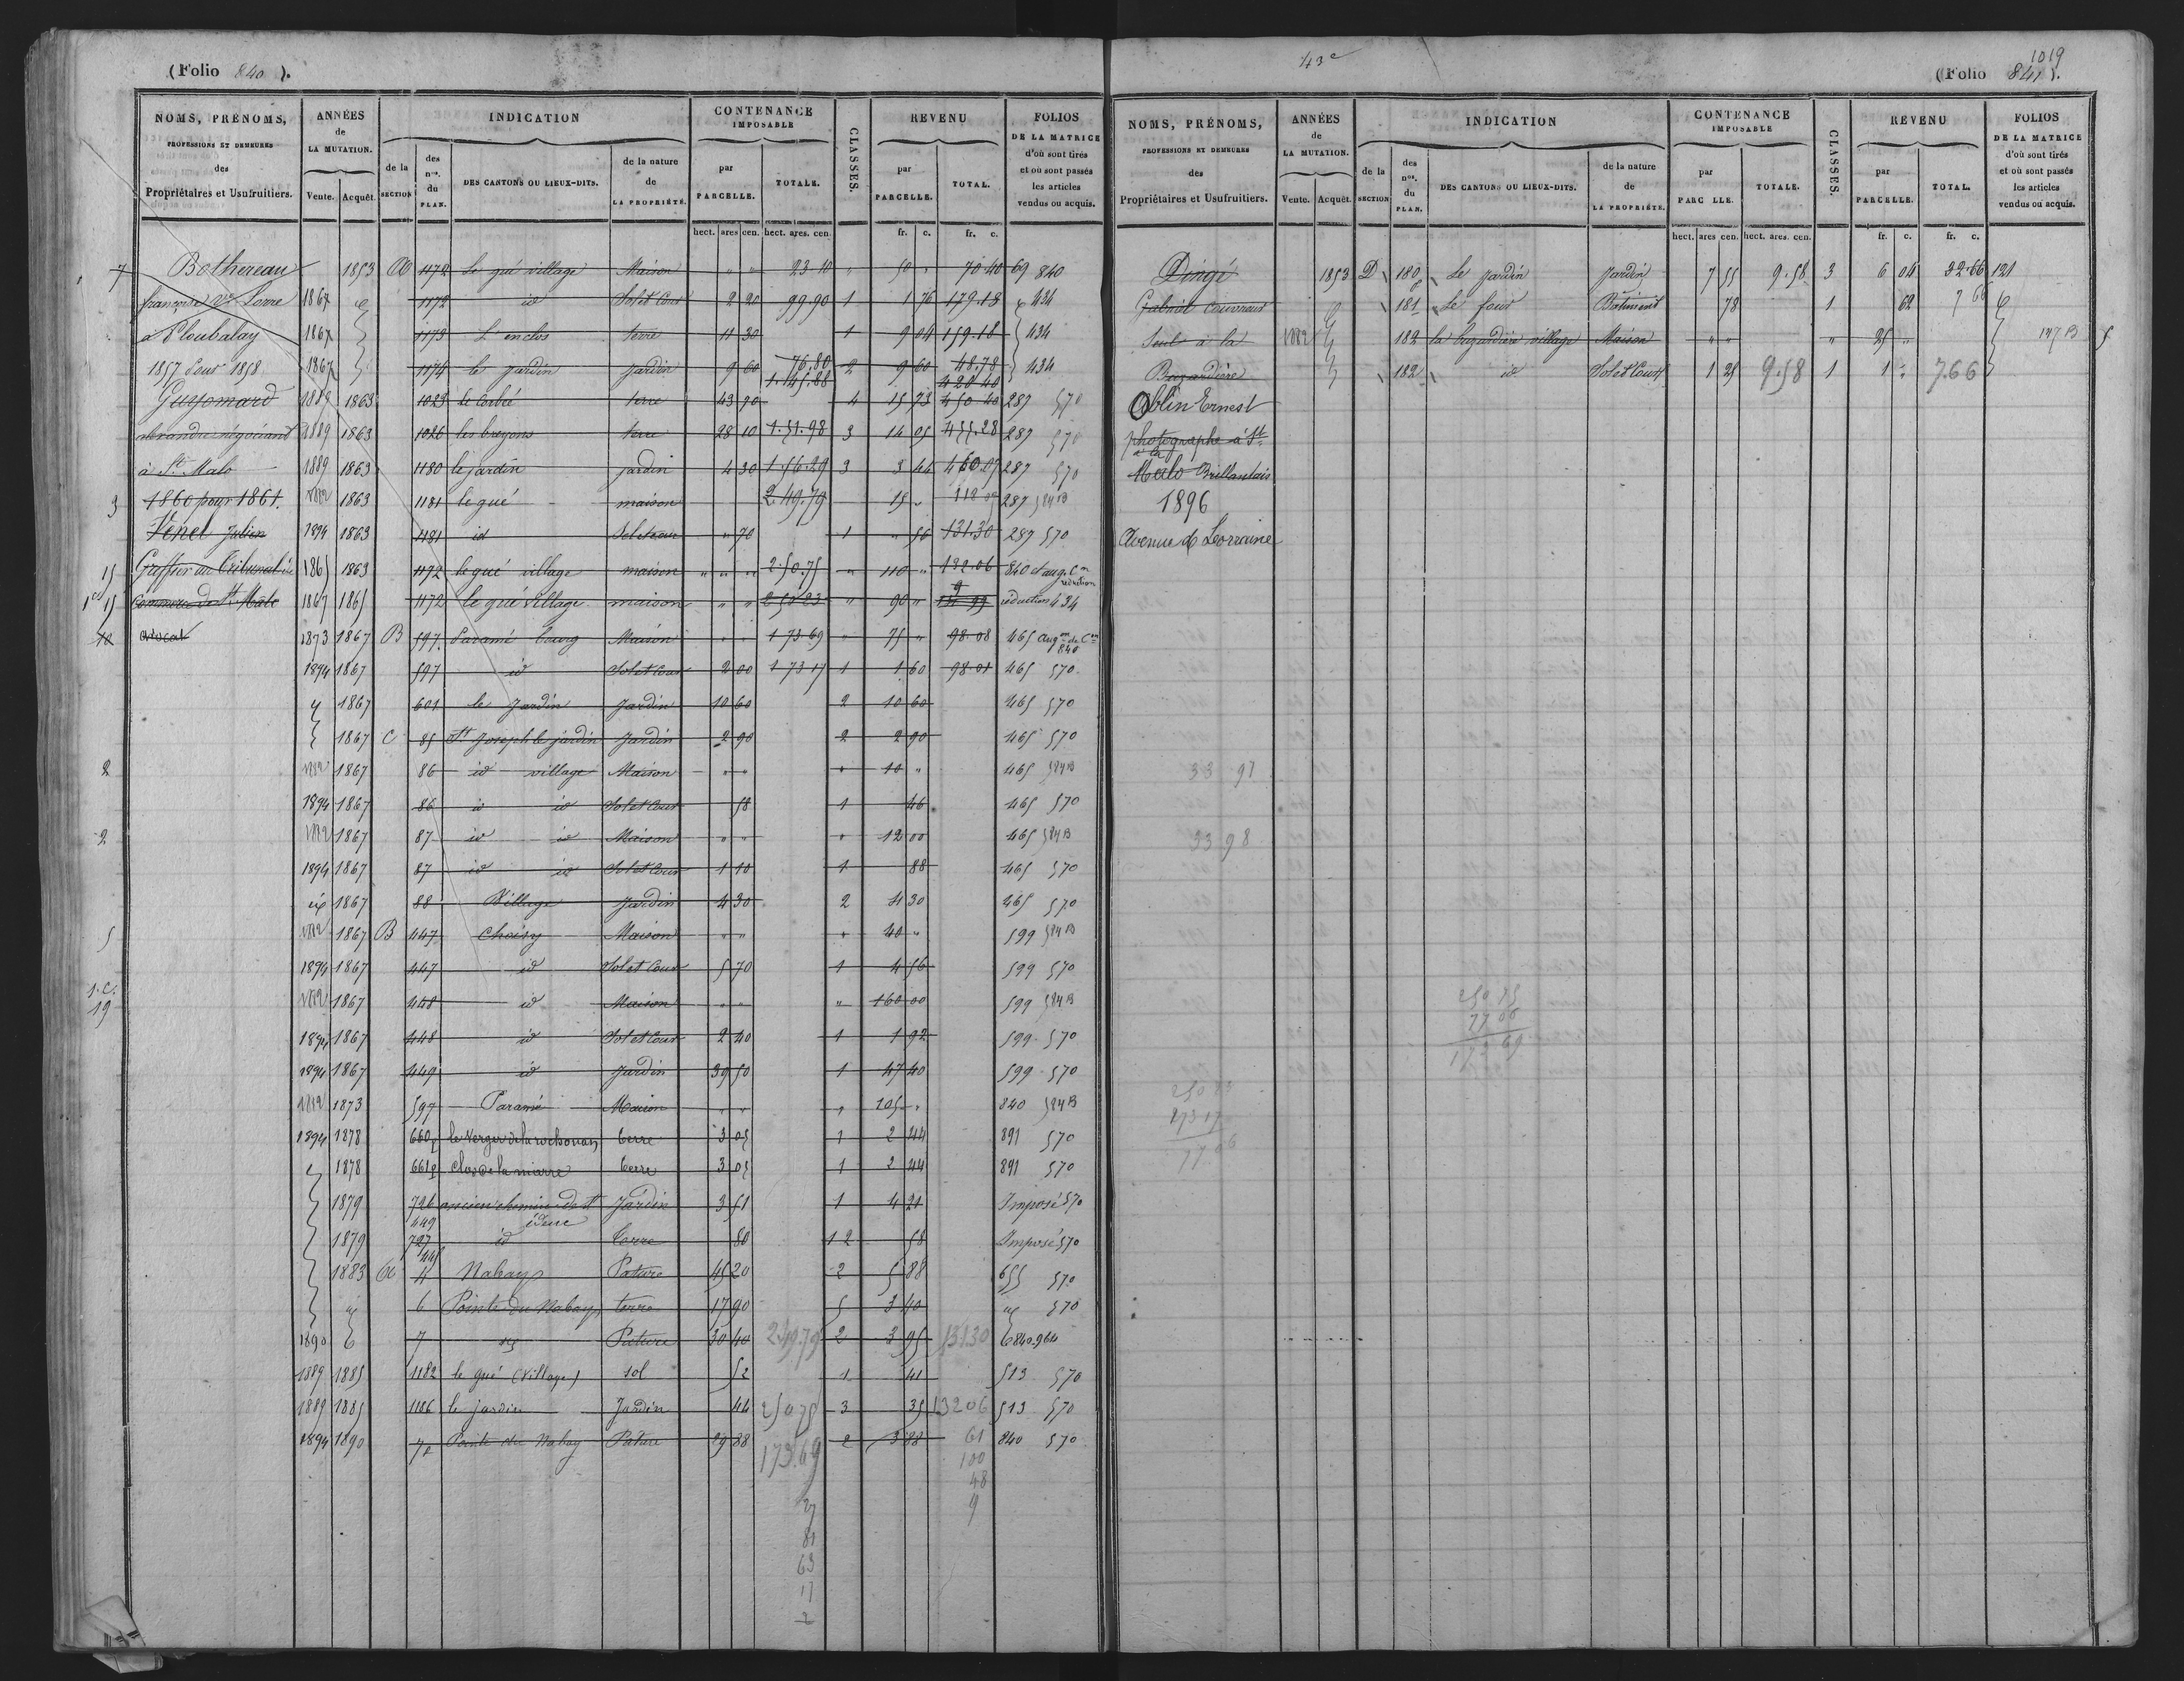 (Folio 840).
NOMS, PRÉNOMS, PROFESSIONS ET DEMEURES des Propriétaires et Usufruitiers.
ANNÉES de LA MUTATION. Vente. Acquêt.
INDICATION de la SECTION des nos. du PLAN. DES CANTONS OU LIEUX-DITS. de la nature de LA PROPRIÉTÉ.
CONTENANCE IMPOSABLE par PARCELLE. TOTALE.
CLASSES.
REVENU par PARCELLE. TOTAL.
FOLIOS DE LA MATRICE d'où sont tirés et où sont passés les articles vendus ou acquis.
hect. ares cen. hect. ares. cen. fr. c. fr. c.
7 Bothereau 1853 1172 le gué village Maison " " 23 10 " 50 " 70 40 69 840
françoise Ve Lorre 1867 id 1172 id Sol et Cour 2 20 99.90 1 1 76 179.18 434
à Ploubalay 1867 1173 L'enclos terre 11 30 1 9 04 159.18 434
1857 pour 1858 1867 1174 le jardin jardin 9 60 76.80 2 9 60 48.78 434
1.145.88 428 40
Guyomard 1889 1863 1023 le Corbié terre 43 90 4 15 73 450 40 287 570
négociant 1889 1863 1026 les breyons terre 28 10 1.51.98 3 14 05 455.28 287 570
à St Malo 1889 1863 1180 le jardin jardin 4 30 1.56.29 3 3 44 460.07 287 570
3 1860 pour 1861. 1882 1863 1181 le gué maison 2.49.79 15 " 287 584B
Venel Julien 1894 1863 1181 id Sol et cour " 70 1 " 56 131.30 287 570
15 Greffier au Tribunal de 1865 1863 1172 le gué village maison " " " 2.50.75 " 110 " 132.06 840 et aug. Con réduction
15 commerce de St Malo 1867 1865 1172 le gué village maison " " " 90 " réduction 434
10 avocat 1873 1867 B 597 Paramé bourg Maison " " 1 73 69 " 75 " 98.08 465 augon de Con 840
1894 1867 597 id Sol et Cour 2 00 1 73 17 1 1 60 98.01 465 570
1867 601 le jardin jardin 10 60 2 10 60 465 570
1867 C 85 St Joseph le jardin jardin 2 90 2 2 90 465 570
2 1882 1867 86 id village Maison " " " 10 " 465 584B
1894 1867 86 id id Sol et Cour 58 1 46 465 570
2 1882 1867 87 id id Maison " " " 12 00 465 584B
1894 1867 87 id id Sol et Cour 1 10 1 88 465 570
id 1867 88 Village jardin 4 30 2 4 30 465 570
5 1882 1867 B 447 Choisy Maison " " " 40 " 599 584B
1894 1867 447 id Sol et Cour 5 70 1 4 56 599 570
1.C. 19 1882 1867 448 id Maison " " " 160 00 599 584B
1894 1867 448 id Sol et Cour 2 40 1 1 92 599 570
1894 1867 449 id jardin 39 50 1 47 40 599 570
1882 1873 597 Paramé Maison " " " 105 " 840 584B
1894 1878 660p le Verger de la rochonan terre 3 05 1 2 44 891 570
1878 661p clos de la miarre terre 3 05 1 2 44 891 570
1879 726 449 ancien chemin de St ideuc Jardin 3 51 1 4 21 Imposé 570
1879 727 445 id terre 80 1 2 58 Imposé 570
1883 4 Nabays Pature 45 20 2 5 88 655 570
id 6 Pointe du Nabays terre 17 90 5 3 40 id 570
1890 7 id Pature 30 40 249.79 2 3 95 131.30 840.964
1889 1885 1182 le gué (Village) sol 52 1 41 513 570
1889 1885 1186 le jardin Jardin 44 250 75 3 35 132 06 513 570
1894 1890 7p Pointe du Nabay Pature 29 88 173.69 2 3 88 61 840 570
100
48
27 9
81
63
17
2
43e
1019
(Folio 841).
NOMS, PRÉNOMS, PROFESSIONS ET DEMEURES des Propriétaires et Usufruitiers.
ANNÉES de LA MUTATION. Vente. Acquêt.
INDICATION de la SECTION des nos. du PLAN. DES CANTONS OU LIEUX-DITS. de la nature de LA PROPRIÉTÉ.
CONTENANCE IMPOSABLE par PARC LLE. TOTALE.
CLASSES.
REVENU par PARCELLE. TOTAL.
FOLIOS DE LA MATRICE d'où sont tirés et où sont passés les articles vendus ou acquis.
hect. ares cen. hect. ares. cen. fr. c. fr. c.
Dingé 1853 D 180p Le jardin jardin 7 55 9.58 3 6 04 32.66 121
Gabriel Couvreur 181 Le four Batiment 78 1 62 7 66
Seul à la 1882 182 la buzardière village Maison " " " 25 " 147 B 5
Buzardière 182 id Sol et Cour 1 25 9.58 1 1 " 7.66
Oblin Ernest
photographe à St
à la
Malo Brillantais
1896
Avenue de Lorraine
33 97
33 98
250 75
77 06
173 69
173 17
77 06